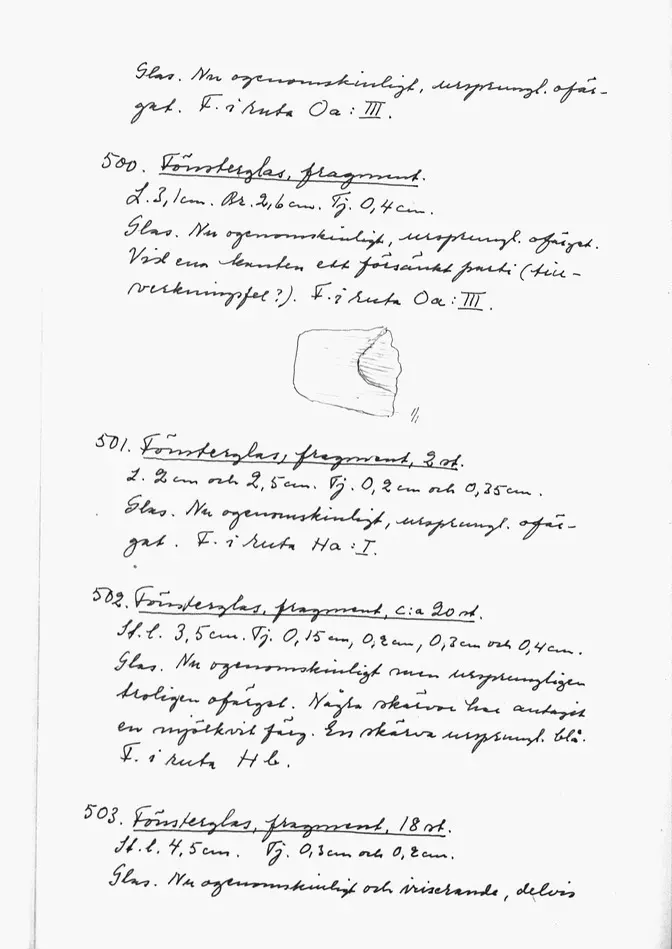 Glas. Nu ogenomskinligt, ursprungl. ofär-
gat. F. i ruta Oa: III.
500. Fönsterglas, fragment.
L. 3,1 cm. Br. 2,6 cm. Tj. 0,4 cm.
Glas. Nu ogenomskinligt, ursprungl. ofärgat.
Vid ena kanten ett försänkt parti (till-
verkningsfel?). F. i ruta Oa: III.
1/1
501. Fönsterglas, fragment, 2 st.
L. 2 cm och 2,5 cm. Tj. 0,2 cm och 0,35 cm.
Glas. Nu ogenomskinligt, ursprungl. ofär-
gat. F. i ruta Ha: I.
502. Fönsterglas, fragment, c:a 20 st.
St. l. 3,5 cm. Tj. 0,15 cm, 0,2 cm, 0,3 cm och 0,4 cm.
Glas. Nu ogenomskinligt men ursprungligen
troligen ofärgat. Några skärvor har antagit
en mjölkvit färg. En skärva ursprungl. blå.
F. i ruta H b.
503. Fönsterglas, fragment, 18 st.
St. l. 4,5 cm. Tj. 0,3 cm och 0,2 cm.
Glas. Nu ogenomskinligt och iriserande, delvis